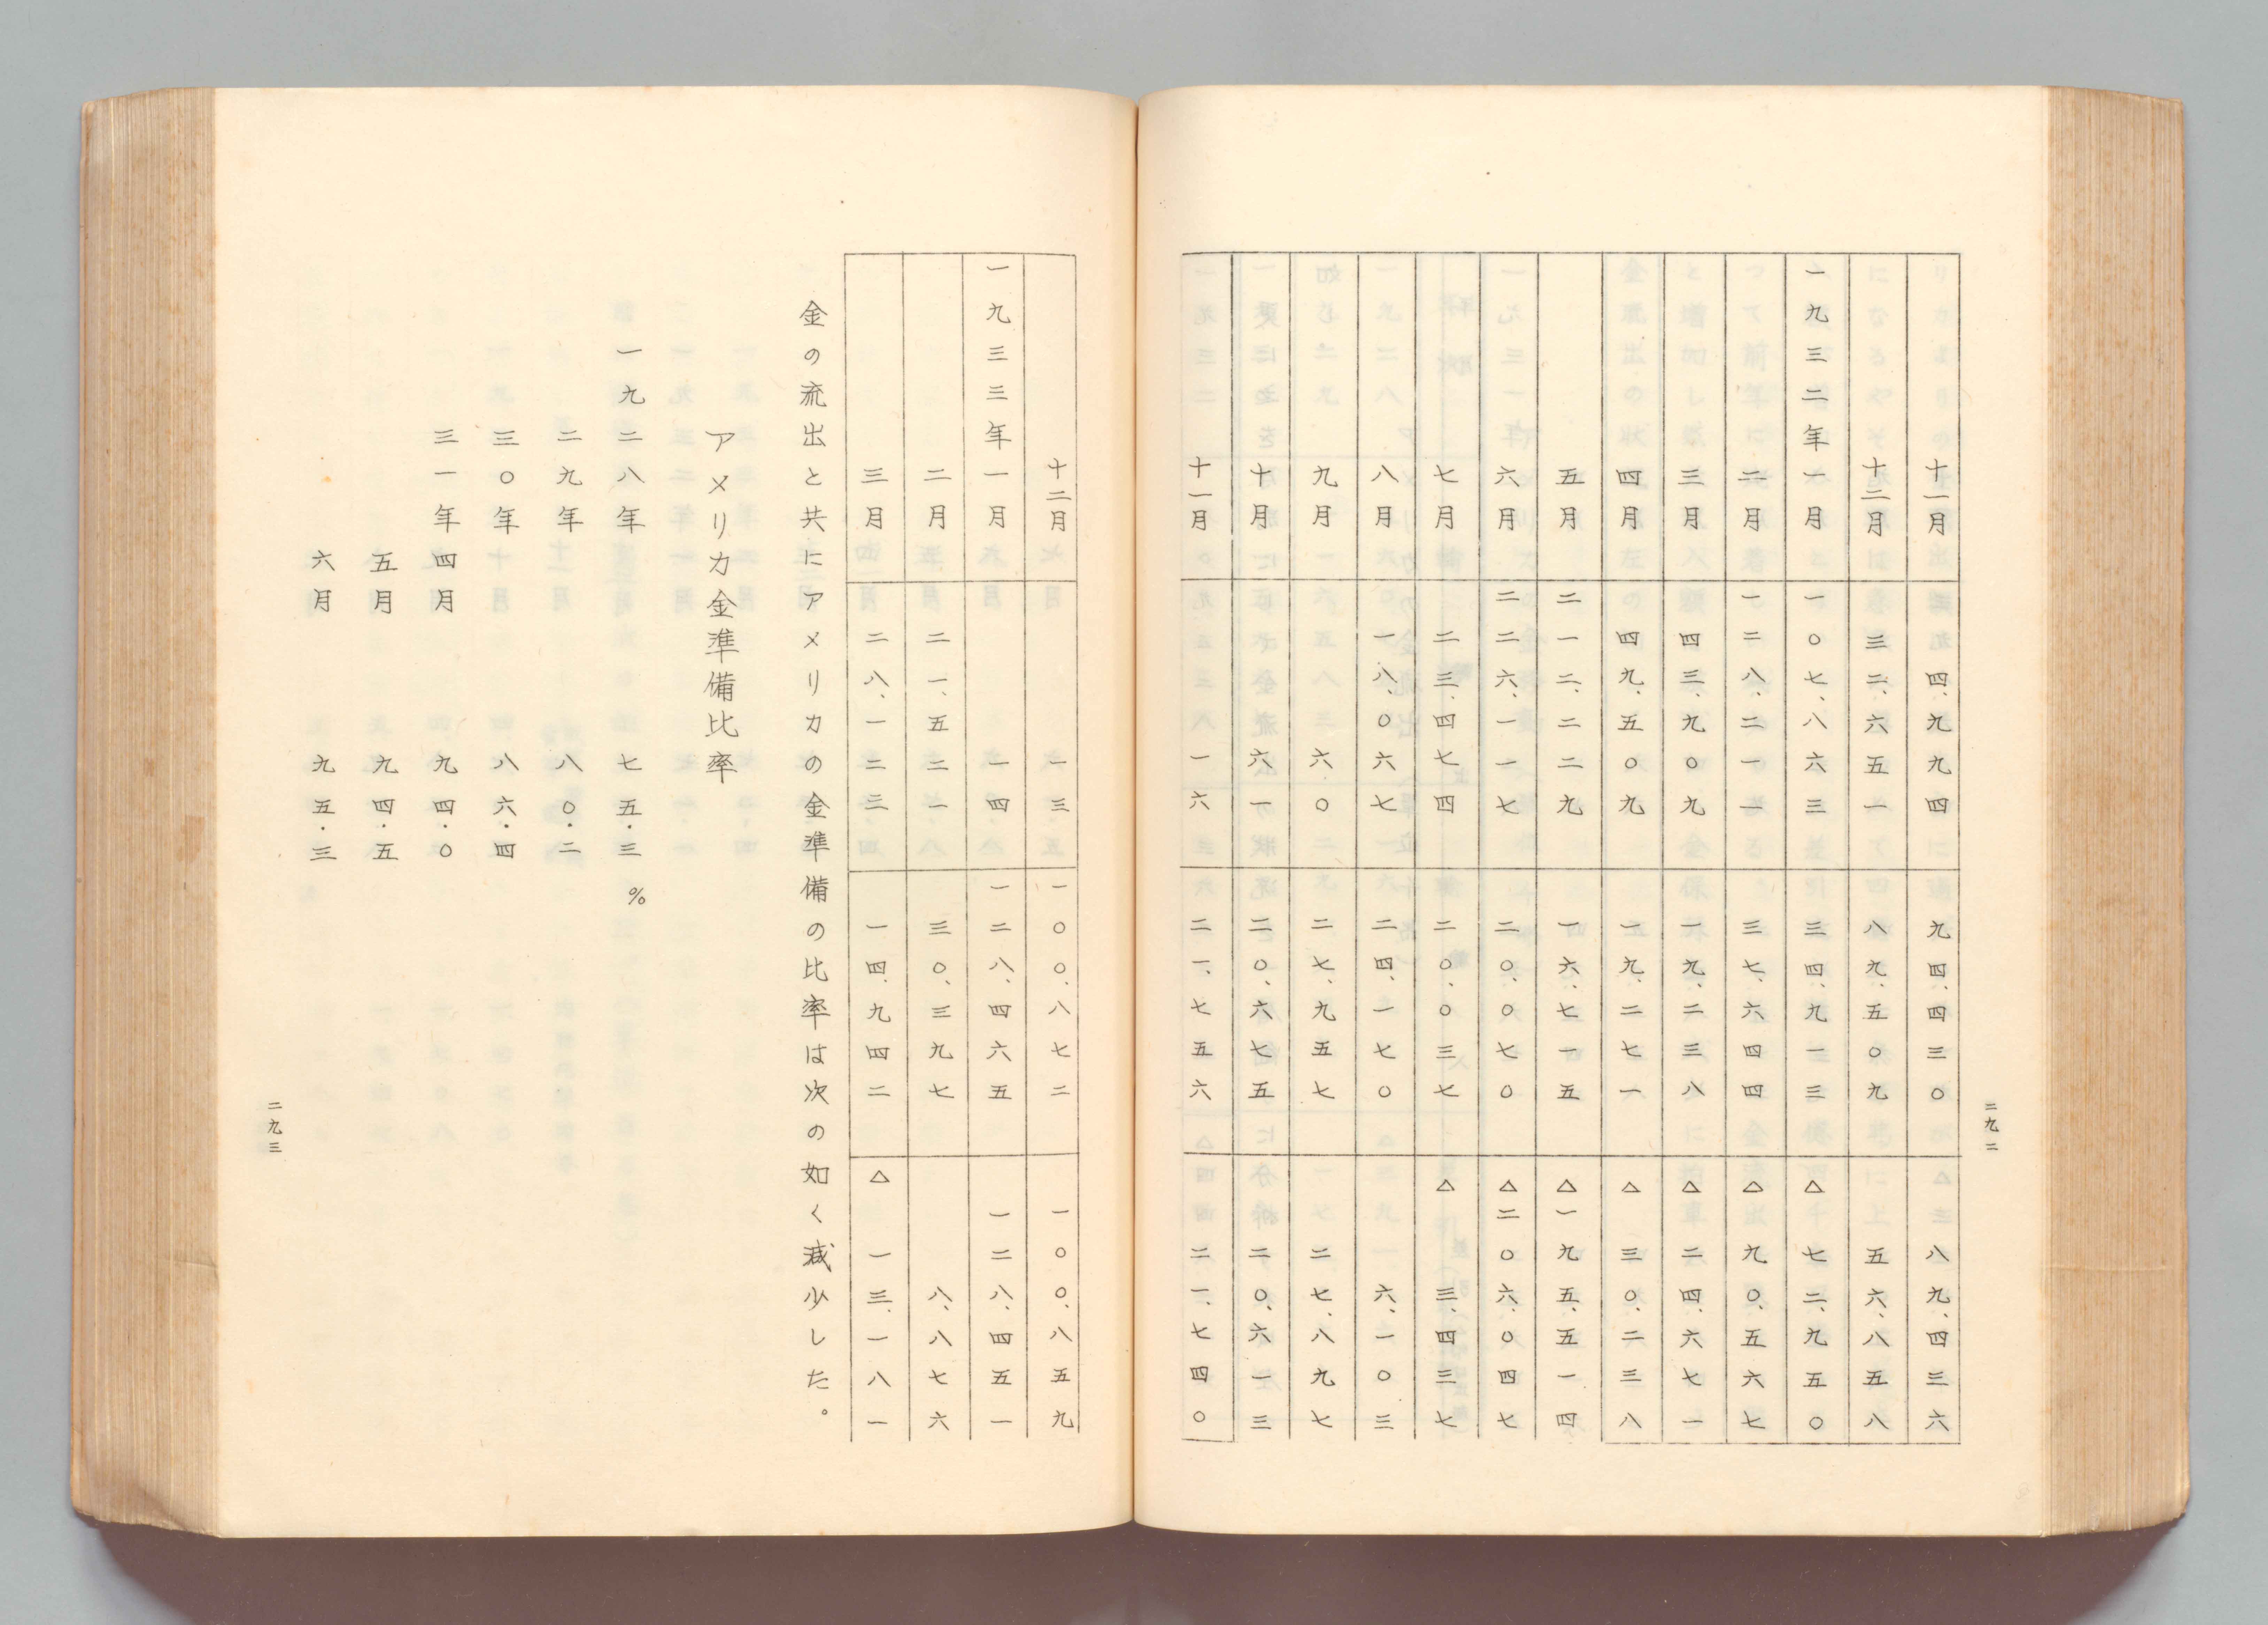 二九二
十一月 四、九九四 九四、四三〇 八九、四三六
十二月 三二、六五一 八九、五〇九 五六、八五八
一九三二年一月 一〇七、八六三 三四、九一三 △七二、九五〇
二月 一二八、二一一 三七、六四四 △九〇、五六七
三月 四三、九〇九 一九、二三八 △二四、六七一
四月 四九、五〇九 一九、二七一 △三〇、二三八
五月 二一二、二二九 一六、七一五 △一九五、五一四
六月 二二六、一一七 二〇、〇七〇 △二〇六、〇四七
七月 二三、四七四 二〇、〇三七 △三、四三七
八月 一八、〇六七 二四、一七〇 六、一〇三
九月 六〇 二七、九五七 二七、八九七
十月 六一 二〇、六七五 二〇、六一三
十一月 一六 二一、七五六 二一、七四〇
十二月 一三 一〇〇、八七二 一〇〇、八五九
一九三三年一月 一四 一二八、四六五 一二八、四五一
二月 二一、五二一 三〇、三九七 八、八七六
三月 二八、一二三 一四、九四二 △一三、一八一
金の流出と共にアメリカの金準備の比率は次の如く減少した。
アメリカ金準備比率
一九二八年 七五・三%
二九年 八〇・二
三〇年 八六・四
三一年四月 九四・〇
五月 九四・五
六月 九五・三
二九三